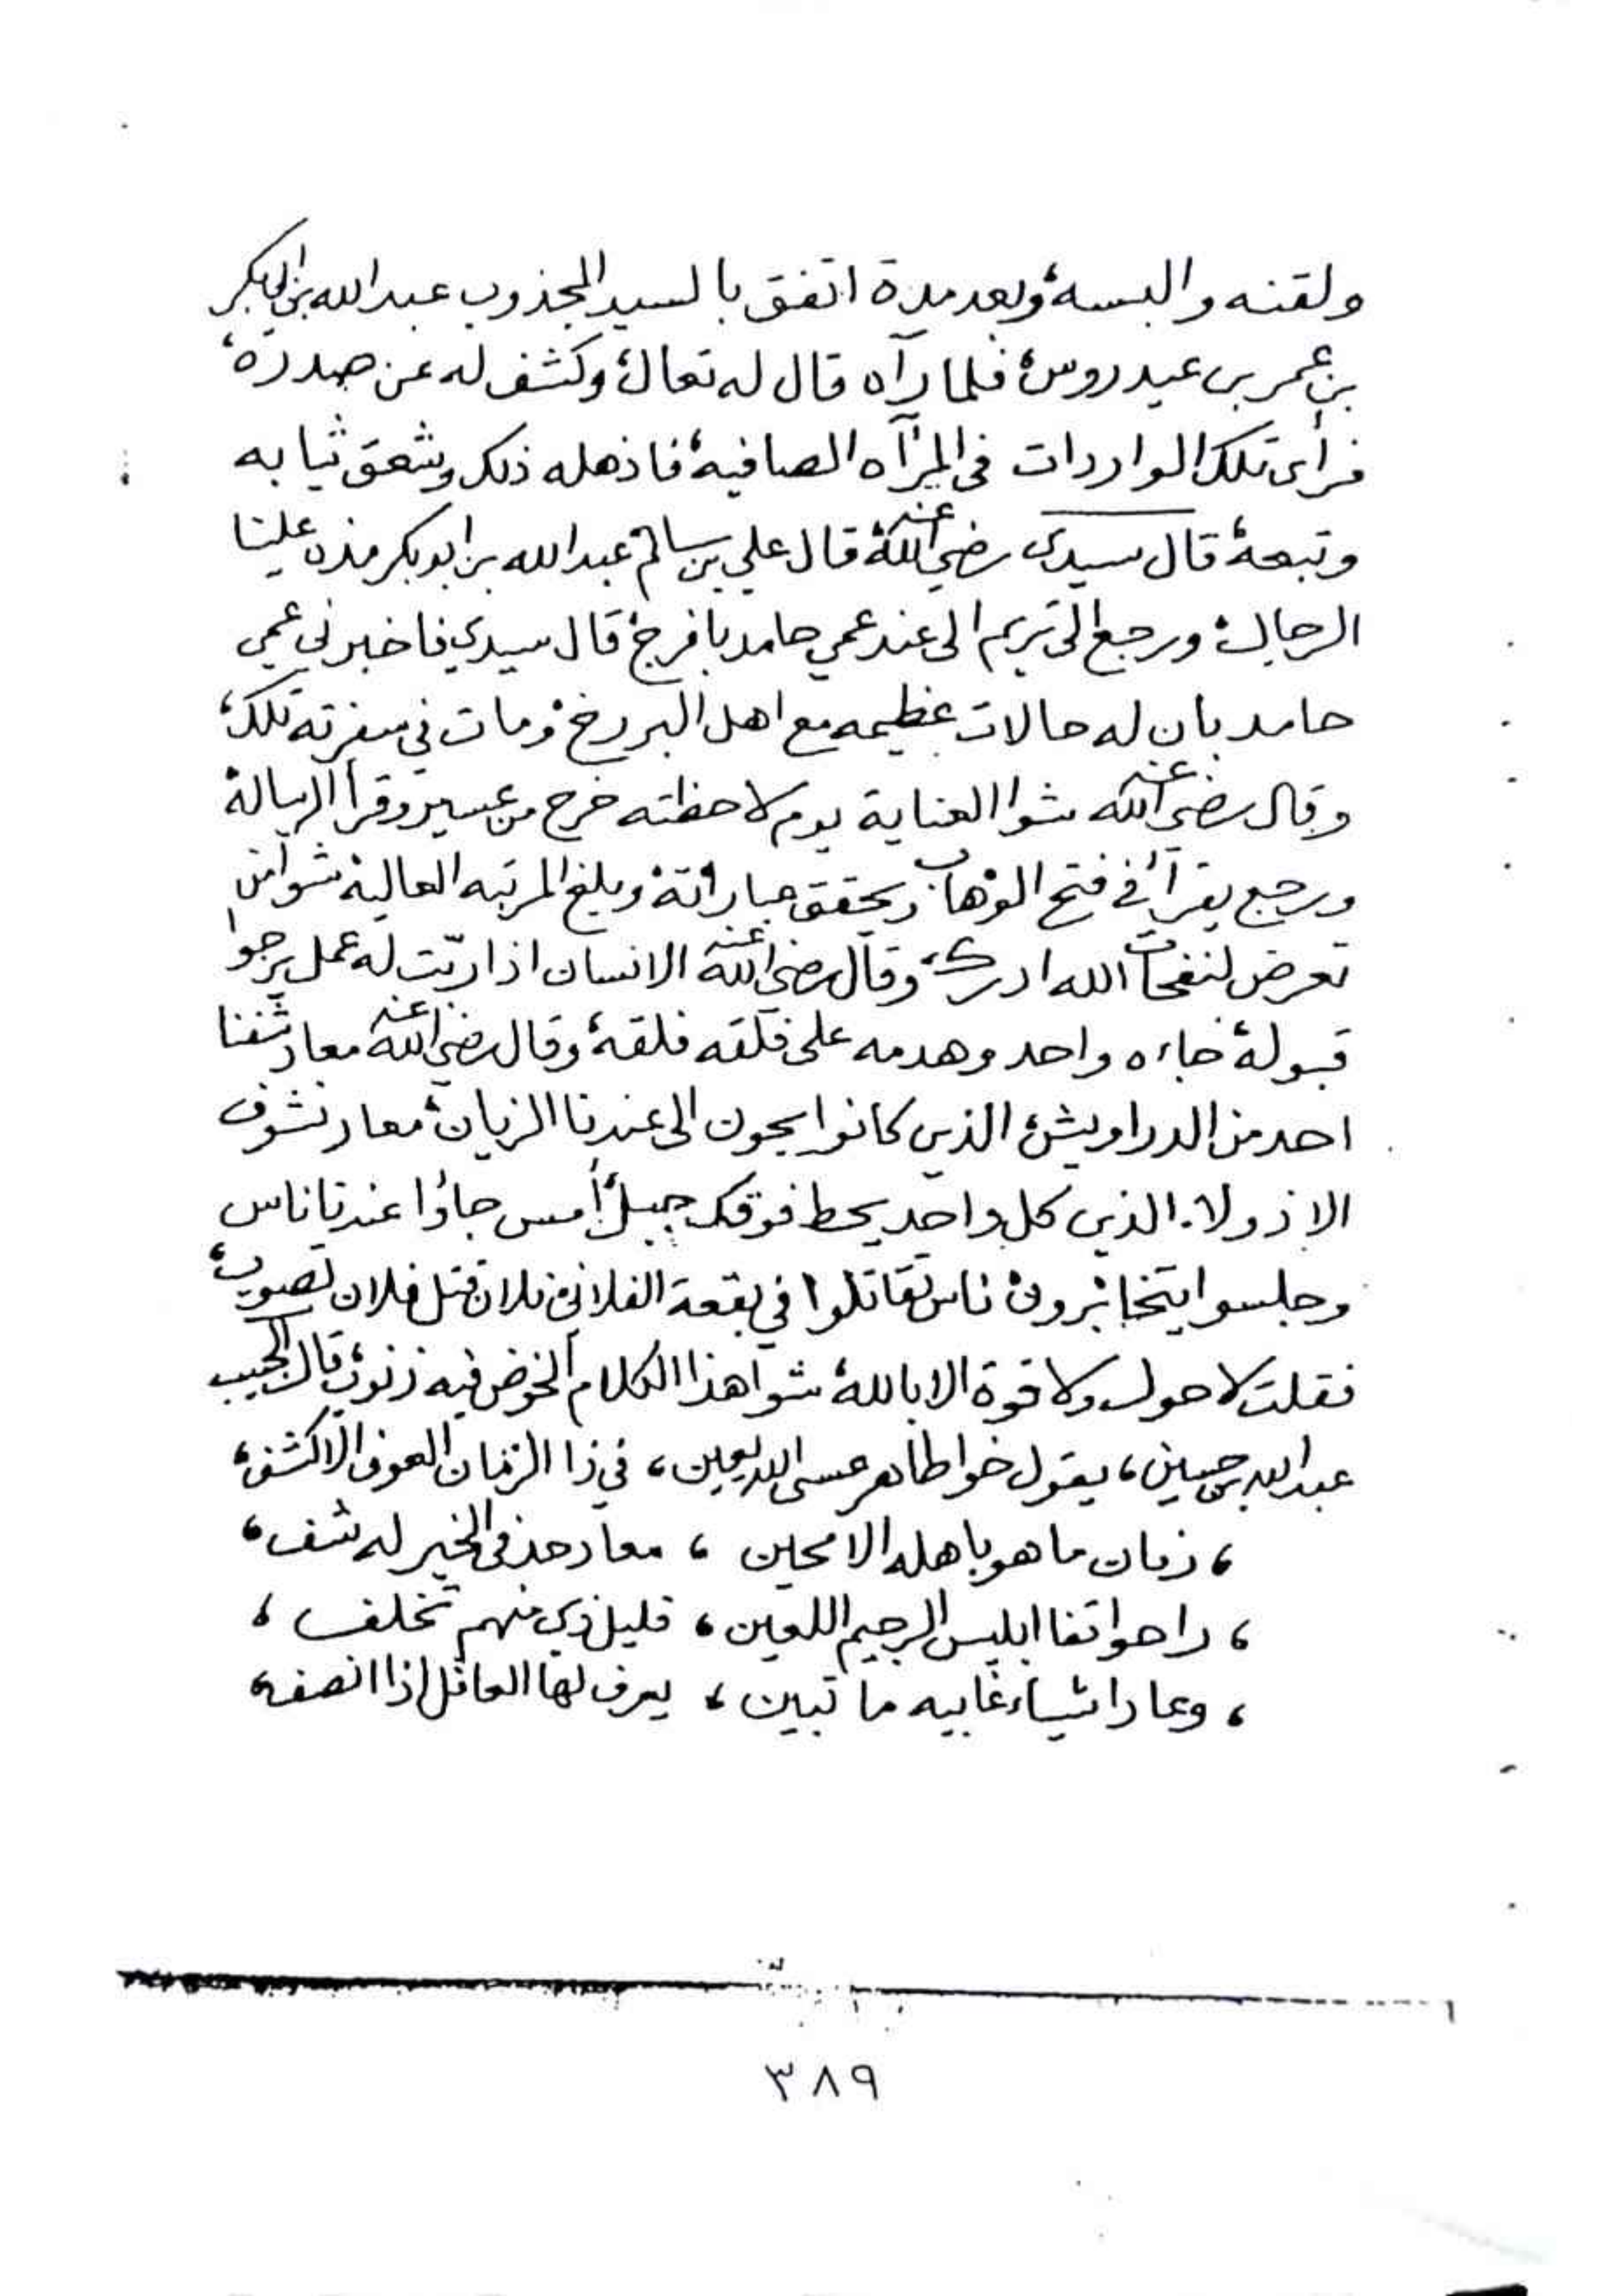 ولقنه والبسه، وبعد مدة اتفق بالسيد المجذوب عبدالله بن ابوبكر
بن عمر بن عيدروس، فلما رآه قال له تعال، وكشف له عن صدره،
فرأى تلك الواردات في المرآه الصافيه، فاذهله ذلك وشعق ثيابه
وتبعه، قال سيدي رضي الله عنه، قال علي بن سالم، عبدالله بن ابوبكر مذه علينا
الرجال، ورجع الى تريم الى عند عمي حامد بافرج، قال سيدي فاخبرني عمي
حامد بان له حالات عظيمه مع اهل البرزخ، ومات في سفرته تلك،
وقال رضي الله عنه شوا العناية يوم لاحظته خرج من عسير وقرأ الرسالة
ورجع يقرأ في فتح الوهاب ويحقق عباراته، وبلغ المرتبه العالية، شوا من
تعرض لنفحات الله ادرك، وقال رضي الله عنه الانسان اذا ربّت له عمل يرجوا
قبوله، جاءه واحد وهدمه على فلقه فلقه، وقال رضي الله عنه معاد شفنا
احد من الدراويش، الذين كانوا يجون الى عندنا الزيان، معاد نشوف
الا ذولا. الذين كل واحد يحط فوقك جبل، أمس جاؤا عندنا ناس
وجلسوا يتخابرون، ناس تقاتلوا في بقعة الفلاني، فلان قتل فلان تصويب،
فقلت لا حول ولا قوة الا بالله، شوا هذا الكلام الخوض فيه ذنوب، قال الحبيب
عبدالله بن حسين، يقول خوا طاهر عسى الله يعين، في ذا الزمان العوف الاكشف،
، زمان ما هو باهله الامحين ، معاد حد في الخير له شف ،
، راحوا تفا ابليس الرجيم اللعين ، قليل ذي منهم تخلف ،
، وعاد اشياء غابيه ما تبين ، يعرف لها العاقل اذا انصف ،
٣٨٩